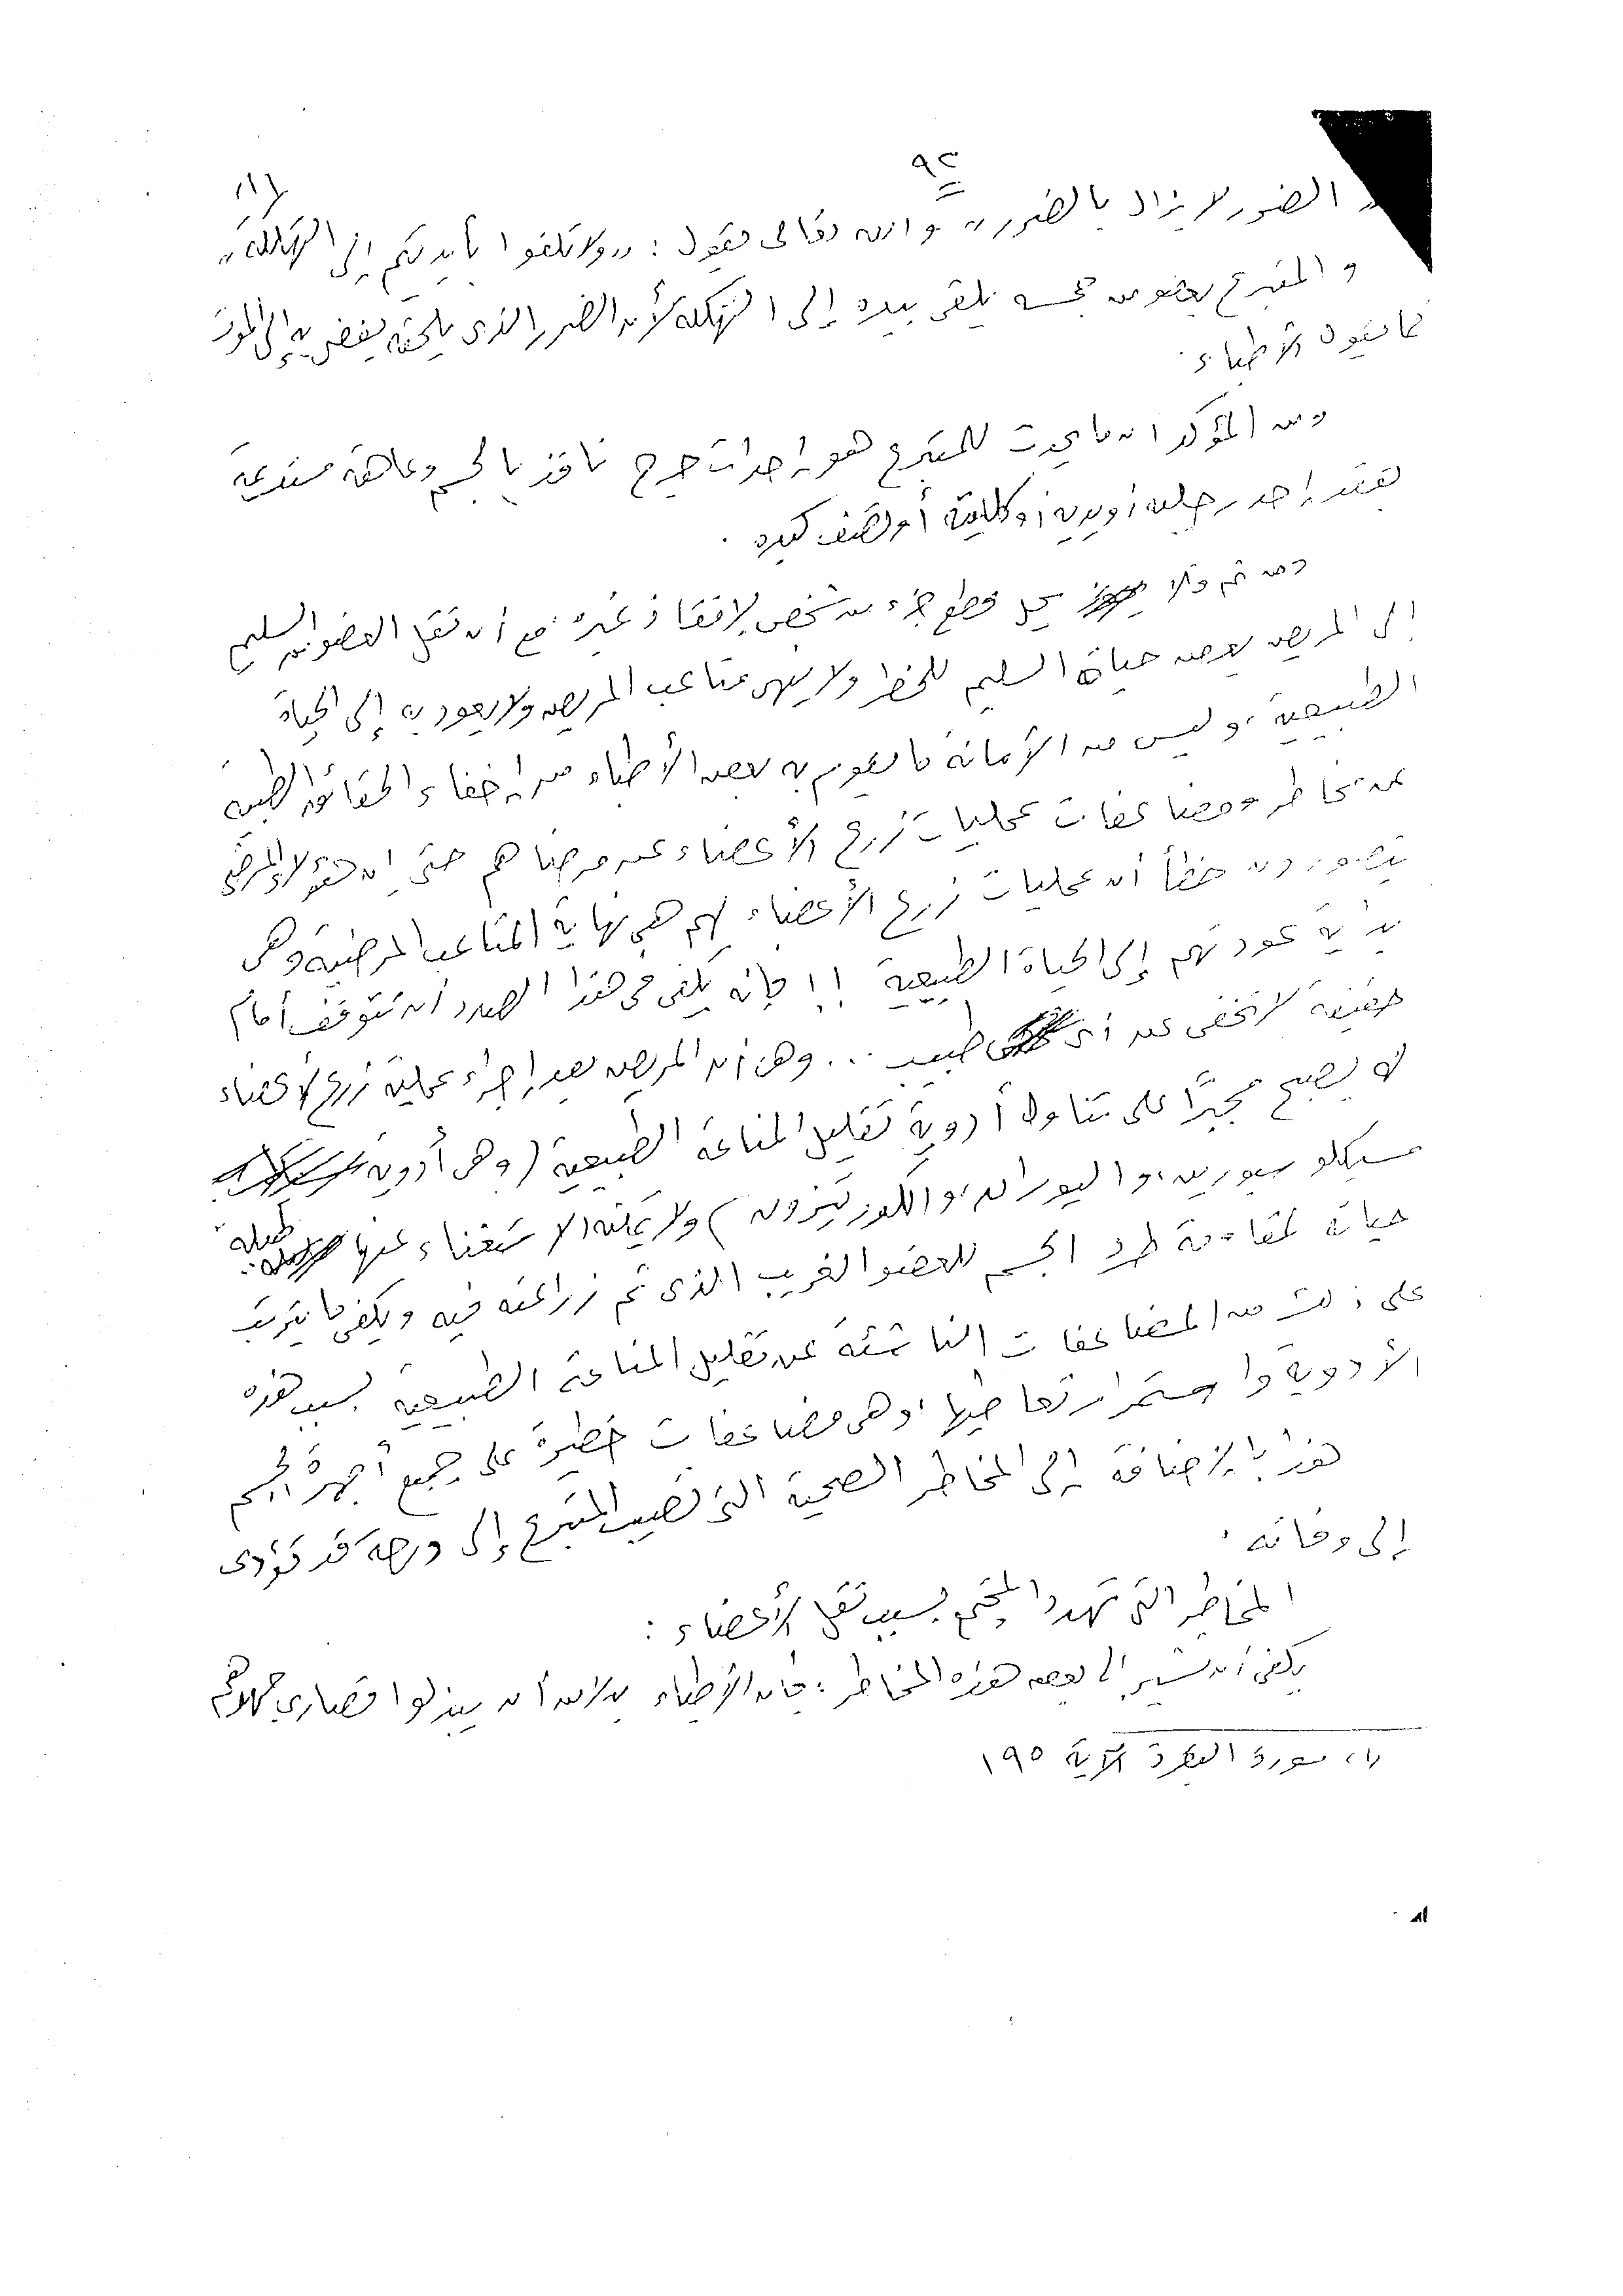 ٩٢
" الضرر لا يزال بالضرر " والله تعالى يقول : " ولا تلقوا بأيديكم إلى التهلكة " (١)
و المتبرع بعضو من جسمه يلقى بيده إلى التهلكة لأن الضرر الذى يلحقه يفضى به إلى الموت
كما يقول الأطباء .
ومن المؤكد ان ما يحدث للمتبرع هو إحداث جرح نافذ بالجسم وعاهة مستديمة
بفقد إحد رجليه أو يديه أو كليته أو نصف كبده .
ومن ثم فلا يحل قطع جزء من شخص لإنقاذ غيره مع أن نقل العضو من السليم
إلى المريض يعرض حياة السليم للخطر ولا ينهى متاعب المريض ولا يعود به إلى الحياة
الطبيعية ، وليس من الأمانة ما يقوم به بعض الأطباء من إخفاء الحقائق الطبية
عن مخاطر ومضاعفات عمليات زرع الأعضاء عن مرضاهم حتى ان هؤلاء المرضى
يتصورون خطأ أن عمليات زرع الأعضاء لهم هى نهاية المتاعب المرضية وهى
بداية عودتهم إلى الحياة الطبيعية !! فإنه يكفى فى هذا الصدد أن نتوقف أمام
حقيقة لا تخفى عن أى طبيب ... وهى أن المريض بعد إجراء عملية زرع الأعضاء
له يصبح مجبرًا على تناول أدوية تقليل المناعة الطبيعية ( وهى أدوية
سيكلو سبورين ، و اليوران ، و الكورتيزون ) ولا يمكنه الاستغناء عنها طيلة
حياته لمقاومة طرد الجسم للعضو الغريب الذى تم زراعته فيه ويكفى ما يترتب
على ذلك من المضاعفات الناشئة عن تقليل المناعة الطبيعية بسبب هذه
الأدوية و استمرار تعاطيها ، وهى مضاعفات خطيرة على جميع أجهزة الجسم
هذا بالإضافة إلى المخاطر الصحية التى تصيب المتبرع إلى درجة قد تؤدى
إلى وفاته .
المخاطر التى تهدد المجتمع بسبب نقل الأعضاء :
يكفى أن نشير إلى بعض هذه المخاطر : فإن الأطباء بدلا من أن يبذلوا قصارى جهودهم
(١) سورة البقرة الآية ١٩٥